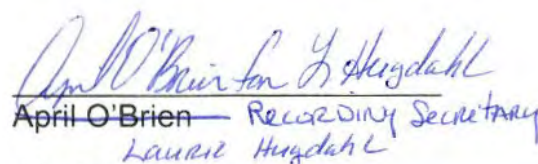 April O'Brien for L Hugdahl
April O'Brien RECORDING SECRETARY
Laurie Hugdahl